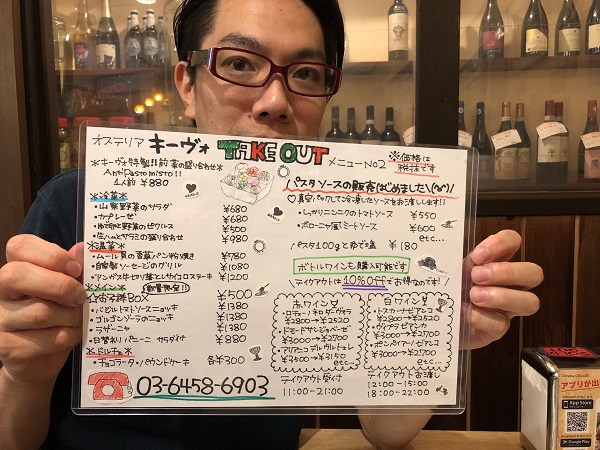 オステリア キーヴォ TAKE OUT メニューNo2
※価格は税抜です
※キーヴォ特製!!前菜の盛り合わせ※
AntiPastomisto!!
1人前 ¥880
※冷菜※
・山梨野菜のサラダ ¥680
・カプレーゼ ¥680
・季節野菜のピクルス ¥500
・生ハムとサラミの盛り合わせ ¥980
※温菜※
・ムール貝の香草パン粉焼き ¥780
・自家製ソーセージのグリル ¥1080
・アンガス牛セリ漬とんサイコロステーキ ¥1200
※メイン※ 数量限定!!
☆お子様BOX ¥500
・バジルトマトソースニョッキ ¥1380
・ゴルゴンゾーラのニョッキ ¥1380
・ラザーニャ ¥1380
・日替わりパニーニ サラダ付 ¥880
※ドルチェ※
・チョコラータ・パウンドケーキ 各¥300
03-6458-6903
パスタソースの販売はじめました\(^o^)/
♡真空パックして冷凍したソースをお渡しします!!
・しっかりニンニクのトマトソース ¥550
・ボローニャ風ミートソース ¥600
etc...
パスタ100gとゆで塩 ¥180
ボトルワインも購入可能です
テイクアウトは10%offでお得なのです!
赤ワイン
・ロチョーノネロダーヴォラ
¥2800→¥2520
・ドモードサンジョベーゼ
¥3000→¥2700
・アリアニコデルヴルトゥレ
¥3500→¥3150
etc...
白ワイン
・トスカーナビアンコ
¥2800→¥2520
・ヴィアラビアンカ
¥3000→¥2700
・ポンペイアーノビアンコ
¥3000→¥2700
etc...
テイクアウト受付
11:00-21:00
テイクアウトお渡し
12:00-15:00
18:00-22:00
アプリが出
App Store
Google Play